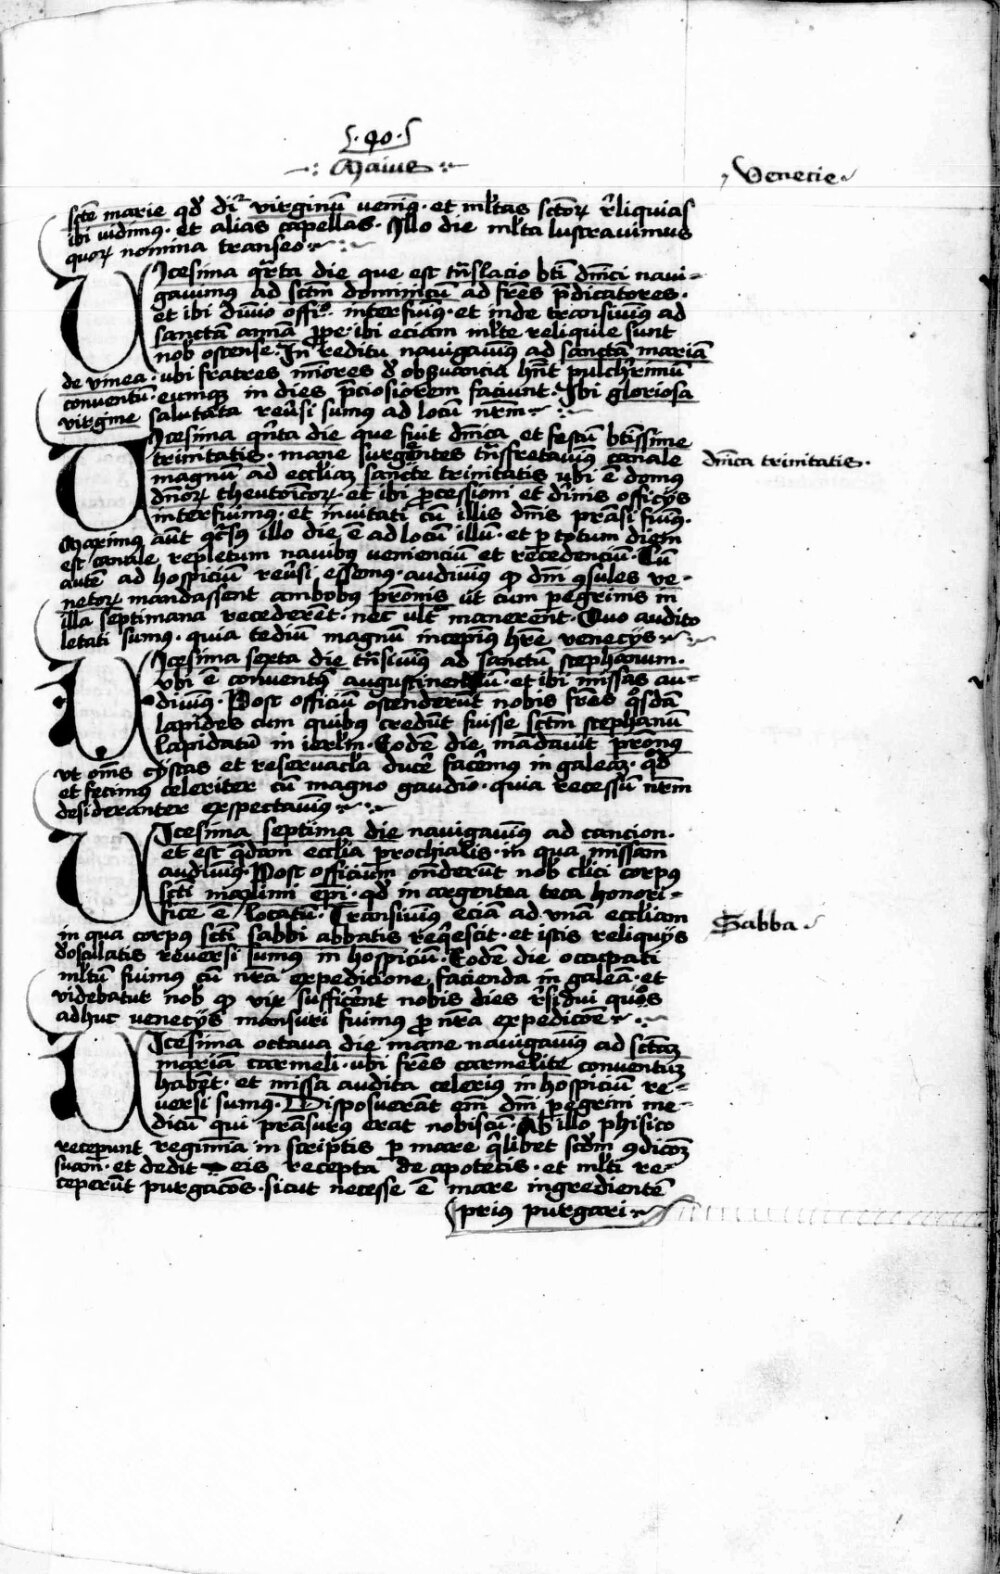 .40.
Maius
Venecie
scte marie qd dr virginu venim9 · et mltas sctoꝝ rliquias
ibi vidimus · et alias capellas · Illo die mlta lustravimus
quoꝝ nomina transeo
Vicesima qrta die que est trslacio bti dnici navi-
gavimus ad sctm dominicu ad fres pdicatores ·
et ibi divio offi° interfuim9 · et inde transivim9 ad
sanctā annā ibi eciam mlte reliquie sunt
nob ostense · In reditu navigavim9 ad sanctā mariā
de vinea · ubi fratres miores d obsvancia hnt pulchrimū
conventū · eumqꝫ in dies pciosiorem faciunt · Ibi gloriosa
virgine salutata reusi sumus ad locū nrm
Vicesima qnta die que fuit dnica et festū btissime
trinitatis · mane surgentes trsfretavim9 canale
magnum ad eccliaꝫ sancte trinitatis ubi ē domus
dnoꝝ theutoicoꝝ · et ibi pcessioni et divis officijs
interfuimus · et invitati cū illis dnis prāsi fuim9 ·
Maximus aut qcsus illo die ē ad locū illū · et p totum diem
est canale repletum navibus veniencium et recedenciū · Cū
autē ad hospiciū reusi essemus · audivim9 qd dni qsules ve-
netoꝝ mandassent ambobus pronis ut cum pegrinis in
illa septimana recederēt · nec ult manerent · Quo audito
letati sumus · quia tediū magnum incepim9 hre venecijs
dnica trinitatis ·
Vicesima sexta die trnsivim9 ad sanctū stephanum ·
vbi ē conventus augustinensium · et ibi missas au-
divim9 · Post officiū ostenderūt nobis fres qsdā
lapides cum quibus credūt fuisse sctm stephanū
lapidatū in ierlm · Eodē die mādavit pron9
vt oms cystas et reservacla ducē facem9 in galeaꝫ · qd
et fecimus celeriter cū magno gaudio · quia recessū nrm
desideranter exspectavim9
Vicesima septima die navigavim9 ad cancion ·
et est qdam ecclia prochialis · in qua missam
audivim9 · Post officium onderūt nob clici corpus
scti maximi epi · qd in argentea teca honori-
fice ē locatū · Transivim9 eciā ad vnā eccliam
in qua corpus scti sabbi abbatis reqescit · et istis reliquijs
dosculatis reversi sumus in hospiciū · Eodē die occupati
mltū fuimus cū nra expedicione facienda in galea · et
videbatur nob qd vix sufficerēt nobis dies rsidui quos
adhuc venecijs mansuri fuimus p nra expedicoe
Sabba
Vicesima octava die mane navigavim9 ad sctaꝫ
mariā carmeli · ubi fres carmelite conventuꝫ
habēt · et missa audita celerius in hospiciū re-
versi sumus · Disposuerāt em dni pegrini me-
dicū qui prāsurus erat nobiscū · Ab illo phisico
receperunt regimina in scriptis p mare qlibet scdm qdicoꝫ
suam · et dedit eis recepta de apotecis · et mlti re-
ceperūt purgacoes · sicut necesse ē mare ingredientē
prius purgari